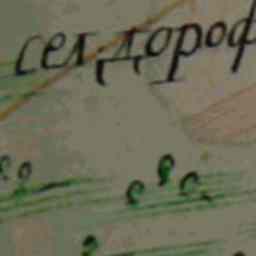 сел. дороф